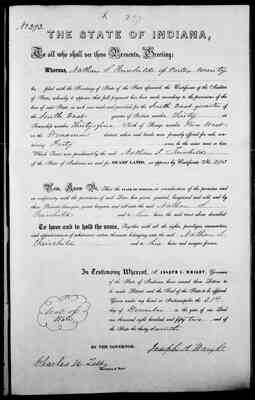 No. 293.
THE STATE OF INDIANA,
To all who shall see these Presents, Greeting:
Whereas, Nathan S. Fairchilds of Porter County
has filed with the Secretary of State of the State aforesaid, the Certificate of the Auditor
of State, whereby it appears that full payment has been made according to the provisions of the
law of said State, in such case made and provided, for the South East quarter of
the South East quarter of Section number Thirty
Township number Thirty-five North of Range number Five West
in the Winamac district above and lands were formerly offered for sale, containing
Forty acres, be the same more or less,
Which Tract was purchased by the said Nathan S. Fairchilds
of the State of Indiana as and for SWAMP LAND, as appears by Certificate No. 293
Now, Know Ye, That THE STATE OF INDIANA, in consideration of the premises and
in conformity with the provisions of said Law, has given, granted, bargained and sold, and by
these Presents does give, grant, bargain, and sell unto the said Nathan S.
Fairchilds and to heirs the said tract above described:
To have and to hold the same, Together with all the rights, privileges, immunities,
and appurtenances of whatsoever nature thereunto belonging, unto the said Nathan S.
Fairchilds and to heirs and assigns forever.
In Testimony Whereof, I, JOSEPH A. WRIGHT, Governor
of the State of Indiana, have caused these Letters to
be made Patent, and the Seal of the State to be affixed.
Given under my hand at Indianapolis, the 21st
day of December in the year of our Lord
one thousand eight hundred and fifty two and
of the State the thirty seventh
Seal of
State
BY THE GOVERNOR:
Joseph A. Wright
Charles H. Test
Secretary of State